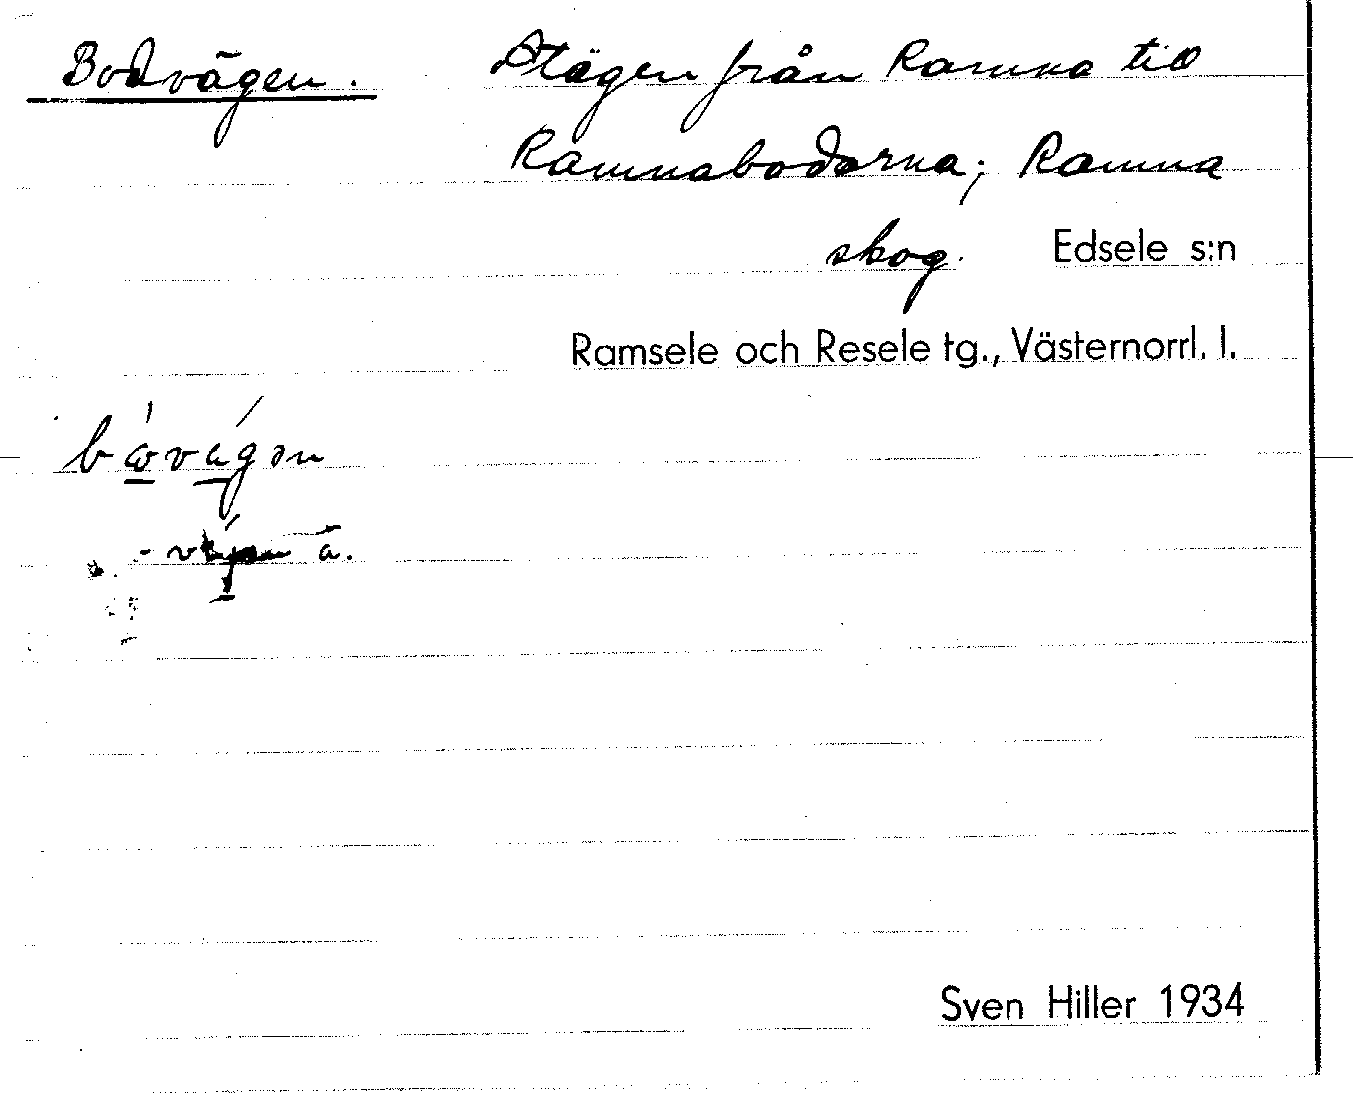 Bodvägen. Stägen från Ramna till
Ramnabodarna; Ramna
skog. Edsele s:n
Ramsele och Resele tg., Västernorrl. l.
a.
Sven Hiller 1934